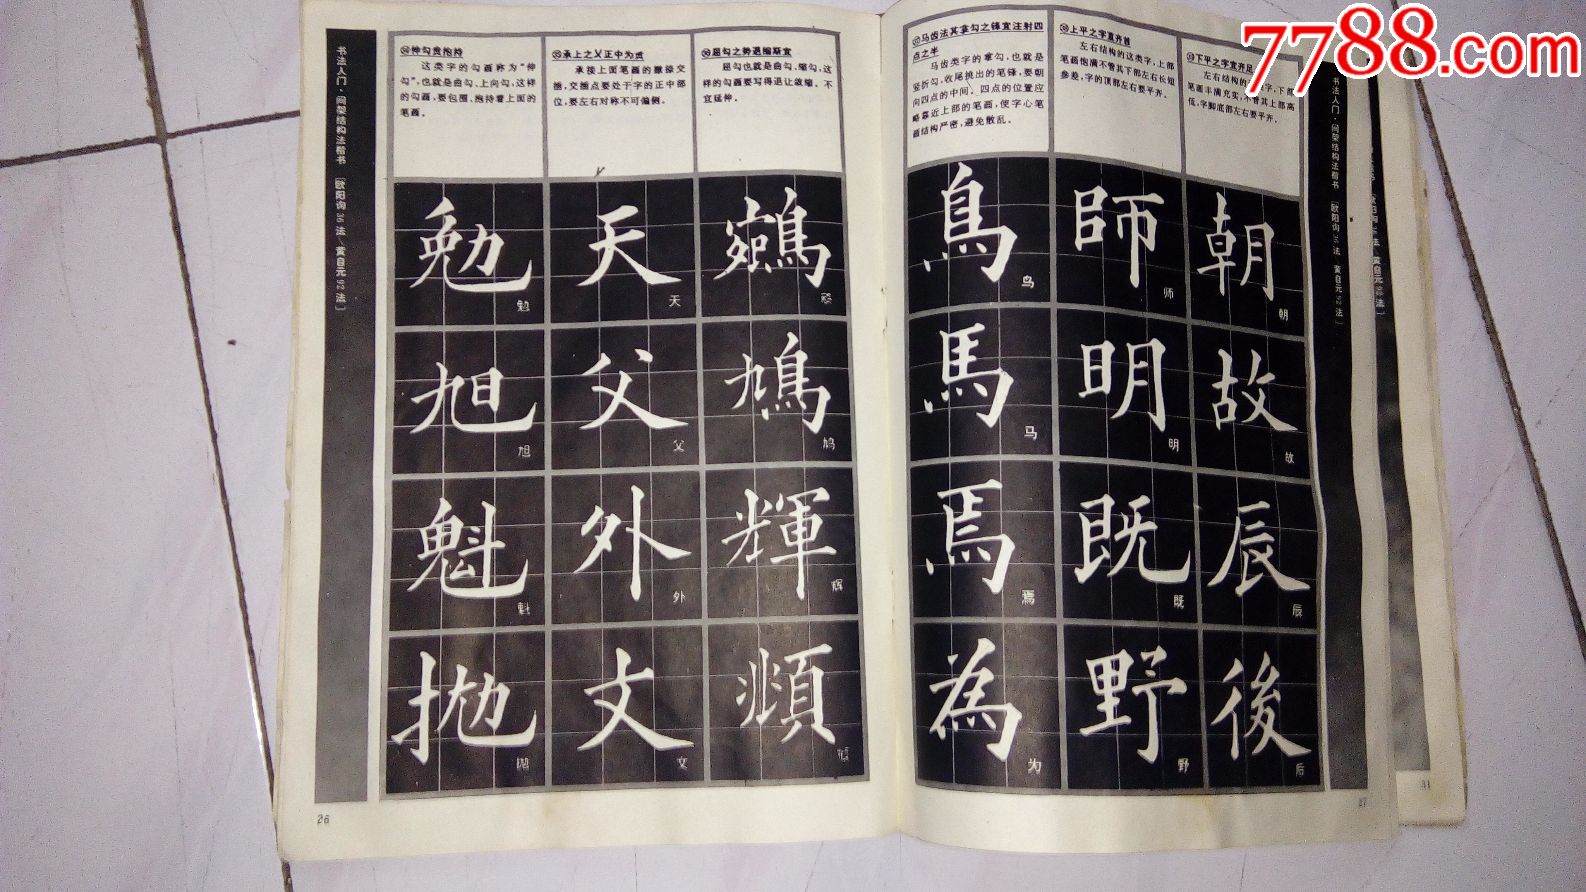 7788.com
书法入门·间架结构法楷书 [欧阳询36法/黄自元92法]
伸勾贵抱持
这类字的勾画称为“伸
勾”,也就是曲勾、上向勾,这样
的勾画,要包围、抱持着上面的
笔画。
承上之乂正中为贵
承接上面笔画的撇捺交
插,交插点要处于字的正中部
位,要左右对称不可偏侧。
屈勾之势退缩斯宜
屈勾也就是曲勾、缩勾,这
样的勾画要写得退让敛缩。不
宜延伸。
勉 天 鵷
勉 天
旭 父 鳩
旭 父 鸠
魁 外 輝
魁 外 辉
拋 文 頫
抛 文
26
马齿法其拿勾之锋宜注射四
点之半
马齿类字的拿勾,也就是
竖折勾,收尾挑出的笔锋,要朝
向四点的中间。四点的位置应
略靠近上部的笔画,使字心笔
画结构严密,避免散乱。
上平之字宜齐首
左右结构的这类字,上部
笔画饱满不管其下部左右长短
参差,字的顶部左右要平齐。
下平之字宜齐足
左右结构的 字,下部
笔画丰满充实,不管其上部高
低,字脚底部左右要平齐。
鳥 師 朝
鸟 师 朝
馬 明 故
马 明 故
焉 既 辰
焉 既 辰
為 野 後
为 野 后
27
书法入门·间架结构法楷书 [欧阳询36法 黄自元92法]
31